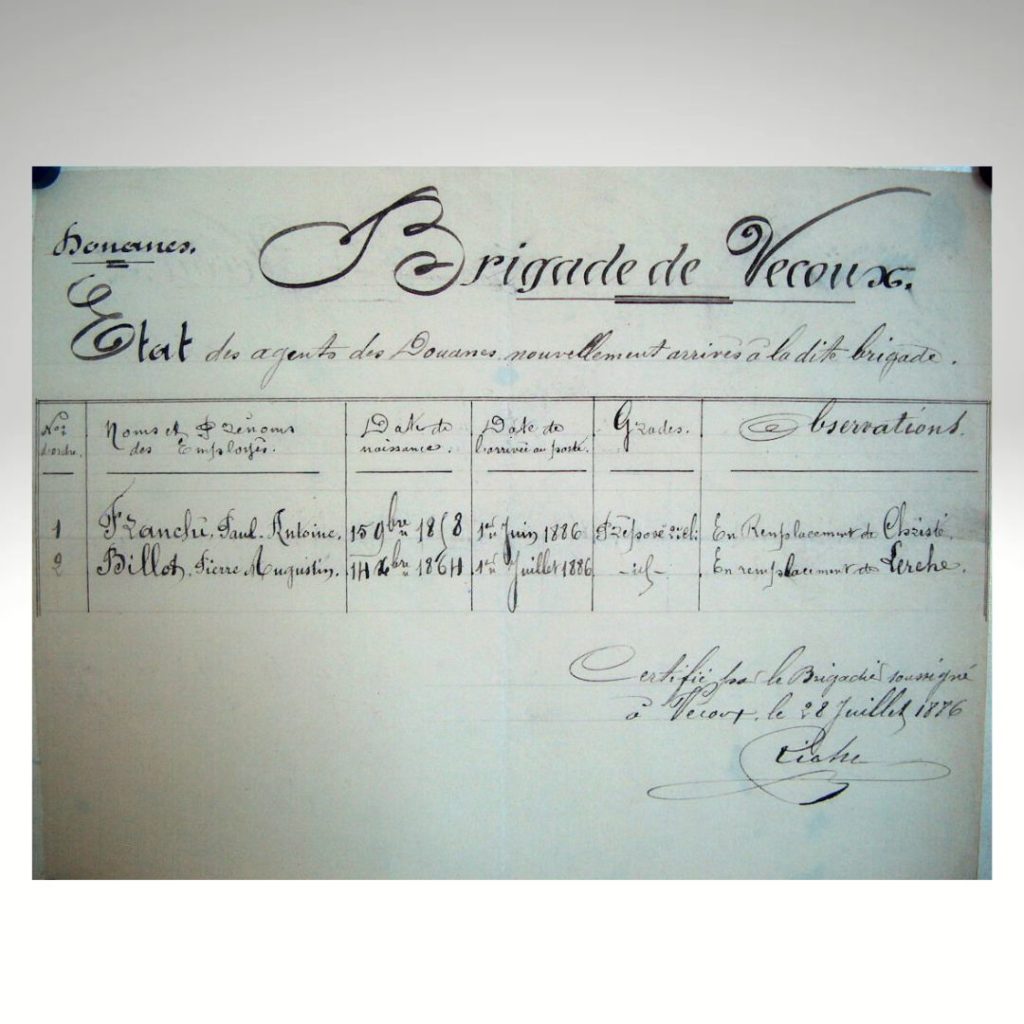 Douanes.
Brigade de Vecoux.
Etat des agents des Douanes nouvellement arrivés à la dite brigade.
Nos d'ordre. Noms et Prénoms des Employés. Date de naissance. Date de l'arrivée au poste. Grades. Observations.
1 Franchi, Paul-Antoine. 15 9bre 1858 1er Juin 1886 Préposé En Remplacement de Christé.
2 Billot, Pierre Augustin. 14 1864 1er Juillet 1886 -id- En remplacement de Lerche.
Certifié par le Brigadier soussigné
à Vecoux, le 28 Juillet 1886